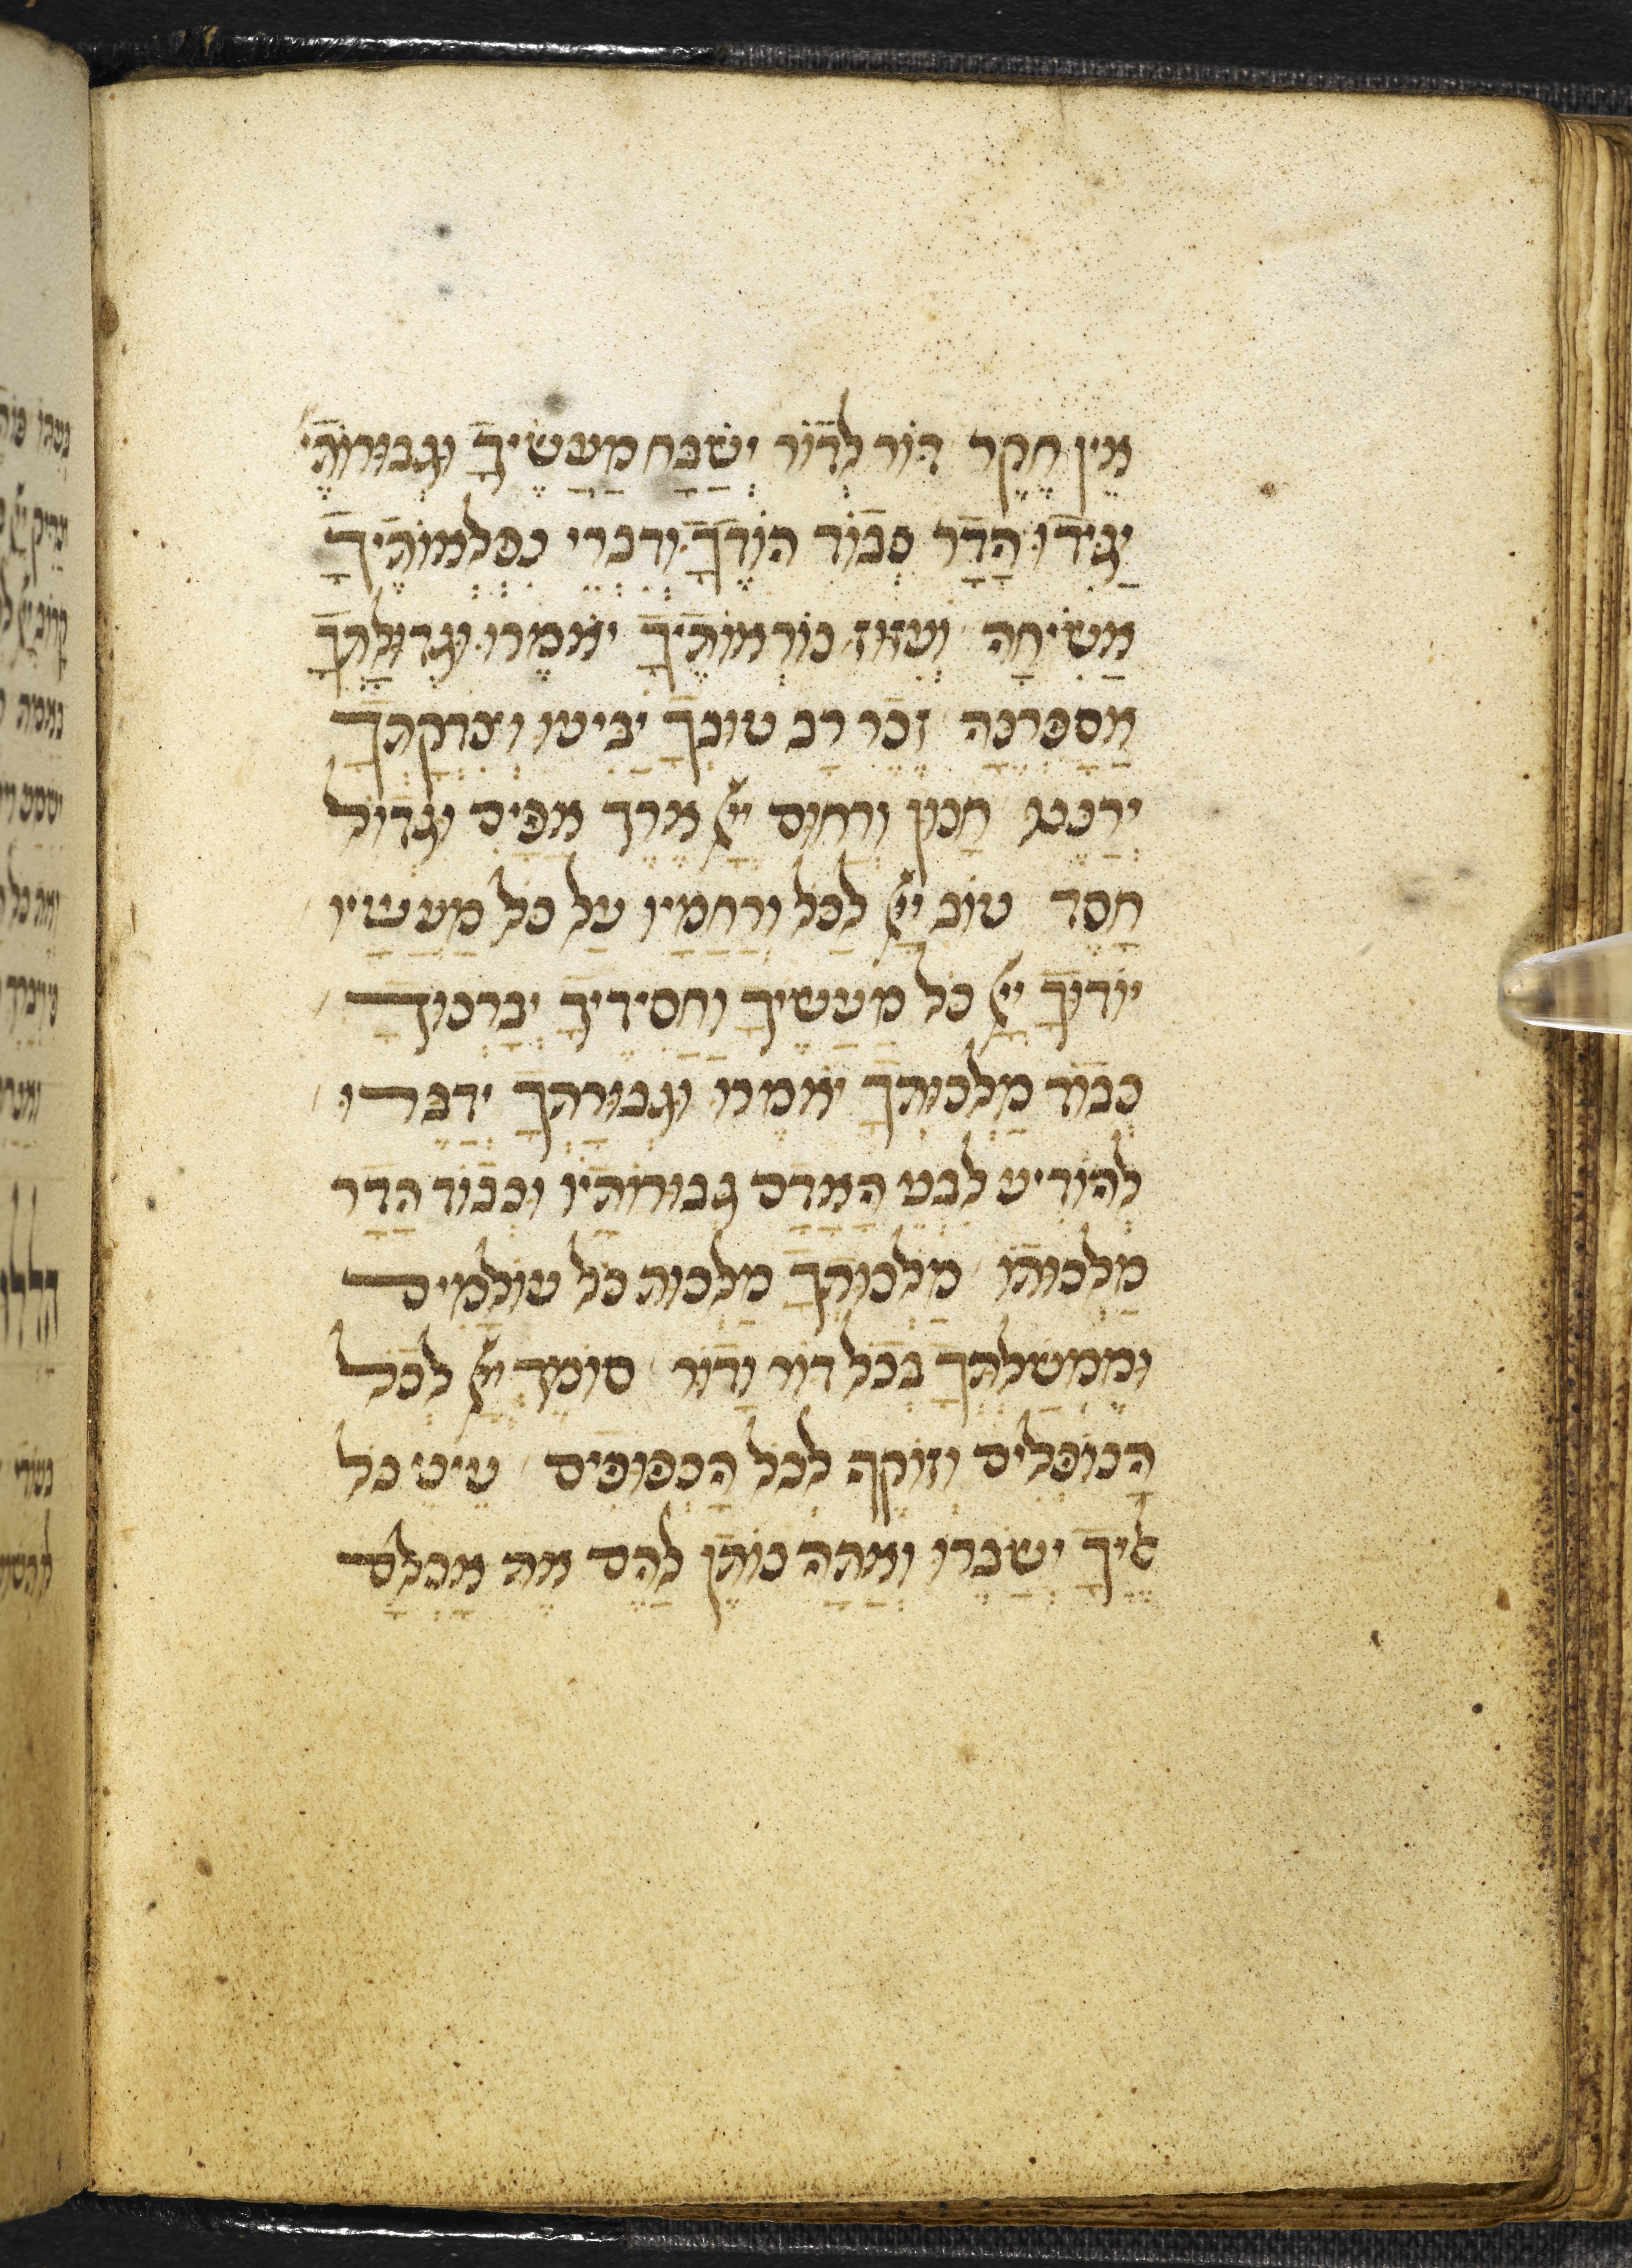 אֵין חֵקֶר דּוֹר לְדוֹר יְשַׁבַּח מַעֲשֶׂיךָ וּגְבוּרוֹתֶי
יַגִּידוּ הֲדַר כְּבוֹד הוֹדֶךָ וְדִבְרֵי נִפְלְאוֹתֶיךָ
אָשִׂיחָה וֶעֱזוּז נוֹרְאוֹתֶיךָ יֹאמֵרוּ וּגְדֻלָּתְךָ
אֲסַפְּרֶנָּה זֵכֶר רַב טוּבְךָ יַבִּיעוּ וְצִדְקָתְךָ
יְרַנֵּנוּ חַנּוּן וְרַחוּם יְיָ אֶרֶךְ אַפַּיִם וּגְדוֹל
חָסֶד טוֹב יְיָ לַכֹּל וְרַחֲמָיו עַל כָּל מַעֲשָׂיו
יוֹדוּךָ יְיָ כָּל מַעֲשֶׂיךָ וַחֲסִידֶיךָ יְבָרְכוּךָ
כְּבוֹד מַלְכוּתְךָ יֹאמֵרוּ וּגְבוּרָתְךָ יְדַבֵּרוּ
לְהוֹדִיעַ לִבְנֵי הָאָדָם גְּבוּרוֹתָיו וּכְבוֹד הֲדַר
מַלְכוּתוֹ מַלְכוּתְךָ מַלְכוּת כָּל עוֹלָמִים
וּמֶמְשַׁלְתְּךָ בְּכָל דּוֹר וָדוֹר סוֹמֵךְ יְיָ לְכָל
הַנּוֹפְלִים וְזוֹקֵף לְכָל הַכְּפוּפִים עֵינֵי כֹל
אֵלֶיךָ יְשַׂבֵּרוּ וְאַתָּה נוֹתֵן לָהֶם אֶת אָכְלָם